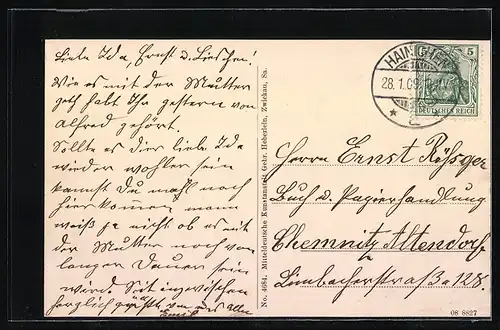 Liebe Ida, Ernst u. Lieschen!
Wie es mit der Mutter
geht habt Ihr gestern von
Alfred gehört.
Sollte es dir liebe Ida
wieder wohler sein
kannst Du mahl noch
hierkommen, mann
weiß ja nicht ob es mit
der Mutter noch von
langer Dauer sein
wird. Seit inzwischen
herzlich gegrüßt von uns allen
Emil
No. 4684. Mitteldeutsche Kunstanstalt Gebr. Heberlein, Zwickau, Sa.
HAINICHEN
28.1.09
5
DEUTSCHES REICH
Herrn Ernst
Buch u. Papierhandlung
Chemnitz Altendorf
Limbacherstraße 128.
08 8827